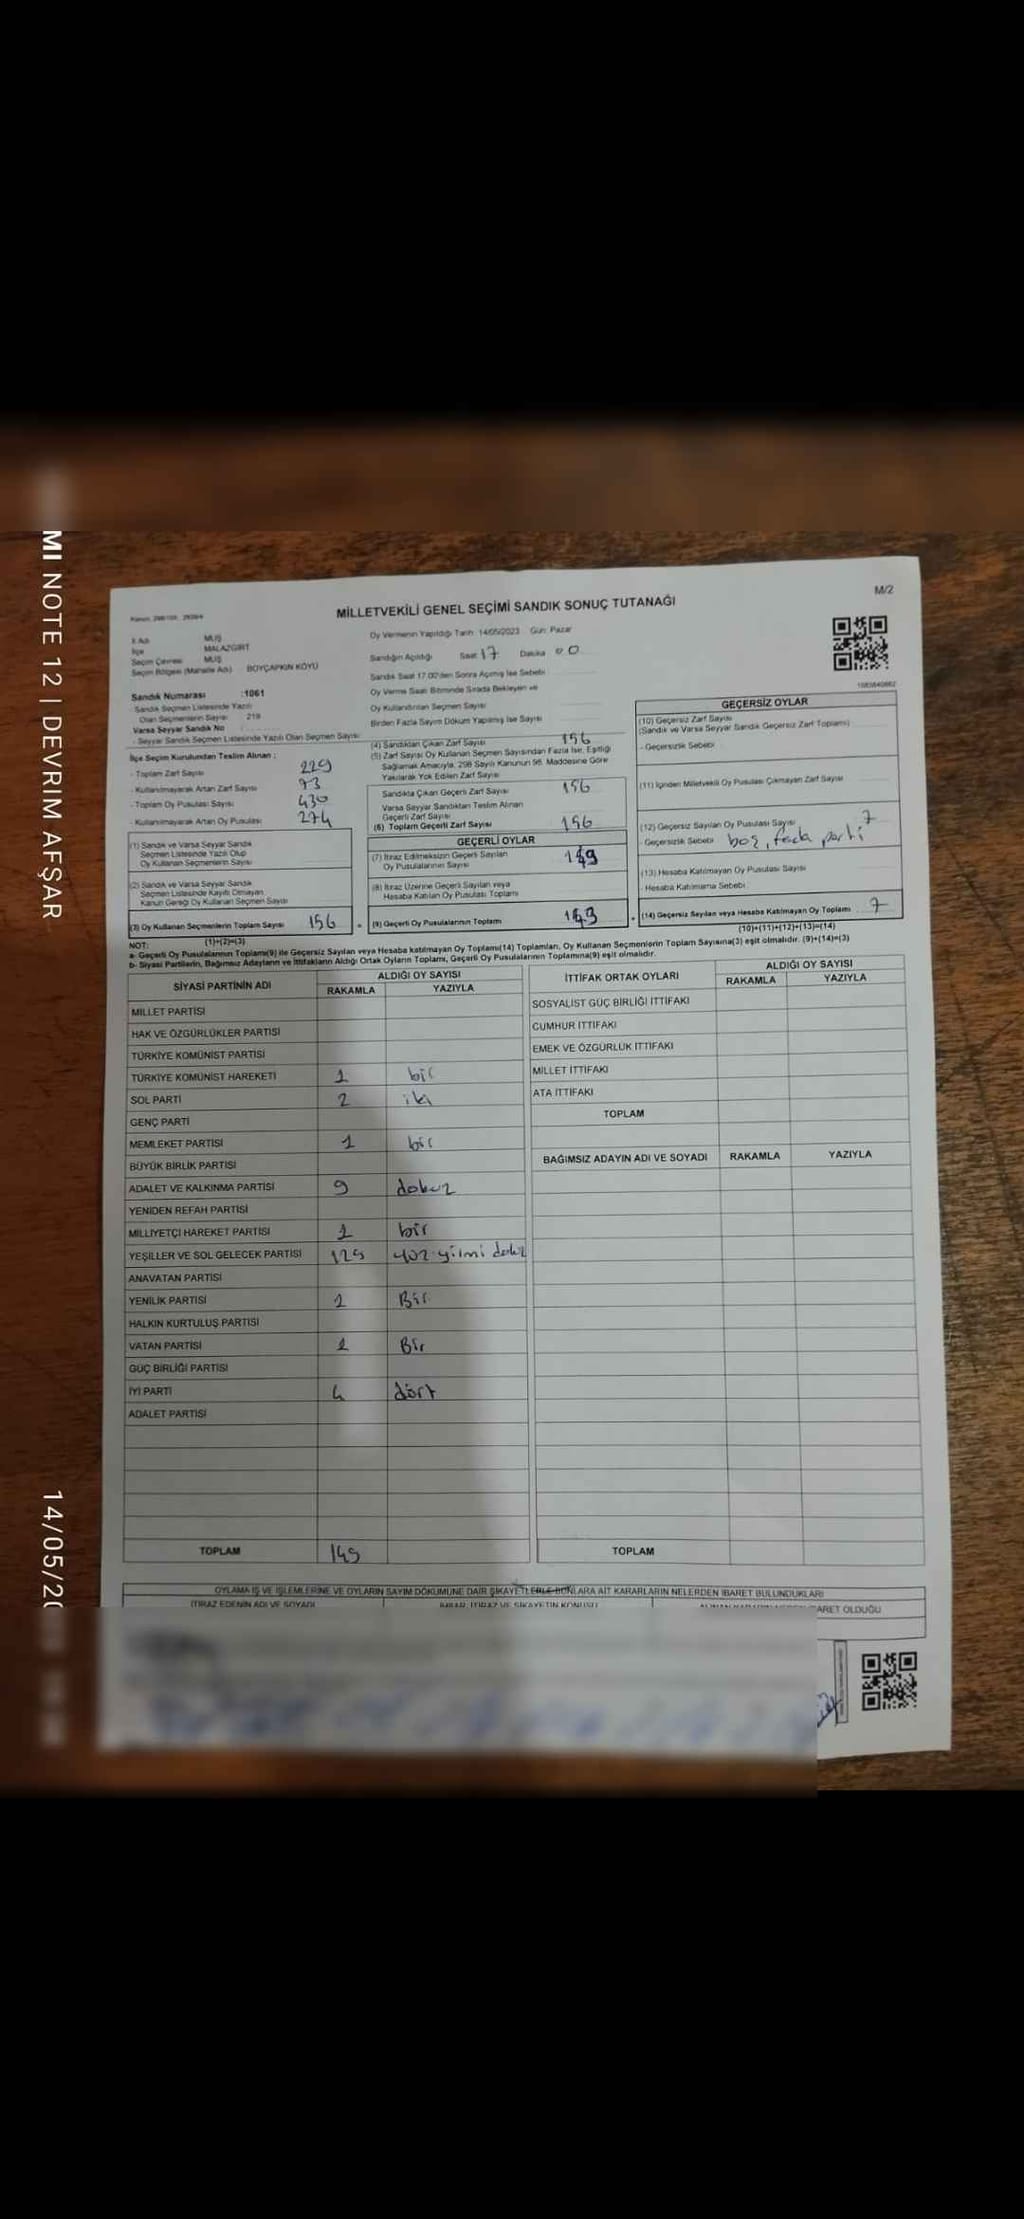 MI NOTE 12 | DEVRIM AFŞAR
14/05/20
M/2
MİLLETVEKİLİ GENEL SEÇİMİ SANDIK SONUÇ TUTANAĞI
İl Adı MUŞ
İlçe MALAZGİRT
Seçim Çevresi MUŞ
Seçim Bölgesi (Mahalle Adı) BOYÇAPKIN KÖYÜ
Sandık Numarası :1061
Sandık Seçmen Listesinde Yazılı
Olan Seçmenlerin Sayısı 219
Varsa Seyyar Sandık No
- Seyyar Sandık Seçmen Listesinde Yazılı Olan Seçmen Sayısı
Oy Vermenin Yapıldığı Tarih: 14/05/2023 Gün: Pazar
Sandığın Açıldığı Saat 17 Dakika 00
Sandık Saat 17.00'den Sonra Açılmış İse Sebebi
Oy Verme Saati Bitiminde Sırada Bekleyen ve
Oy Kullandırılan Seçmen Sayısı
Birden Fazla Sayım Döküm Yapılmış İse Sayısı
İlçe Seçim Kurulundan Teslim Alınan :
- Toplam Zarf Sayısı 229
- Kullanılmayarak Artan Zarf Sayısı 73
- Toplam Oy Pusulası Sayısı 430
- Kullanılmayarak Artan Oy Pusulası 274
(1) Sandık ve Varsa Seyyar Sandık
Seçmen Listesinde Yazılı Olup
Oy Kullanan Seçmenlerin Sayısı
(2) Sandık ve Varsa Seyyar Sandık
Seçmen Listesinde Kayıtlı Olmayan
Kanun Gereği Oy Kullanan Seçmen Sayısı
(3) Oy Kullanan Seçmenlerin Toplam Sayısı 156
(1)+(2)=(3)
(4) Sandıktan Çıkan Zarf Sayısı 156
(5) Zarf Sayısı Oy Kullanan Seçmen Sayısından Fazla İse, Eşitliği
Sağlamak Amacıyla, 298 Sayılı Kanunun 98. Maddesine Göre
Yakılarak Yok Edilen Zarf Sayısı
Sandıkta Çıkan Geçerli Zarf Sayısı 156
Varsa Seyyar Sandıktan Teslim Alınan
Geçerli Zarf Sayısı
(6) Toplam Geçerli Zarf Sayısı 156
GEÇERLİ OYLAR
(7) İtiraz Edilmeksizin Geçerli Sayılan
Oy Pusulalarının Sayısı 149
(8) İtiraz Üzerine Geçerli Sayılan veya
Hesaba Katılan Oy Pusulası Toplamı
(9) Geçerli Oy Pusulalarının Toplamı 149
GEÇERSİZ OYLAR
(10) Geçersiz Zarf Sayısı
(Sandık ve Varsa Seyyar Sandık Geçersiz Zarf Toplamı)
- Geçersizlik Sebebi
(11) İçinden Milletvekili Oy Pusulası Çıkmayan Zarf Sayısı
(12) Geçersiz Sayılan Oy Pusulası Sayısı 7
- Geçersizlik Sebebi boş, fazla parti
(13) Hesaba Katılmayan Oy Pusulası Sayısı
- Hesaba Katılmama Sebebi
(14) Geçersiz Sayılan veya Hesaba Katılmayan Oy Toplamı 7
(10)+(11)+(12)+(13)=(14)
NOT:
a- Geçerli Oy Pusulalarının Toplamı(9) ile Geçersiz Sayılan veya Hesaba katılmayan Oy Toplamı(14) Toplamları, Oy Kullanan Seçmenlerin Toplam Sayısına(3) eşit olmalıdır. (9)+(14)=(3)
b- Siyasi Partilerin, Bağımsız Adayların ve İttifakların Aldığı Ortak Oyların Toplamı, Geçerli Oy Pusulalarının Toplamına(9) eşit olmalıdır.
SİYASİ PARTİNİN ADI ALDIĞI OY SAYISI
RAKAMLA YAZIYLA
MİLLET PARTİSİ
HAK VE ÖZGÜRLÜKLER PARTİSİ
TÜRKİYE KOMÜNİST PARTİSİ
TÜRKİYE KOMÜNİST HAREKETİ 1 bir
SOL PARTİ 2 iki
GENÇ PARTİ
MEMLEKET PARTİSİ 1 bir
BÜYÜK BİRLİK PARTİSİ
ADALET VE KALKINMA PARTİSİ 9 dokuz
YENİDEN REFAH PARTİSİ
MİLLİYETÇİ HAREKET PARTİSİ 1 bir
YEŞİLLER VE SOL GELECEK PARTİSİ 129 yüz yirmi dokuz
ANAVATAN PARTİSİ
YENİLİK PARTİSİ 1 Bir
HALKIN KURTULUŞ PARTİSİ
VATAN PARTİSİ 1 Bir
GÜÇ BİRLİĞİ PARTİSİ
İYİ PARTİ 4 dört
ADALET PARTİSİ
TOPLAM 149
İTTİFAK ORTAK OYLARI ALDIĞI OY SAYISI
RAKAMLA YAZIYLA
SOSYALİST GÜÇ BİRLİĞİ İTTİFAKI
CUMHUR İTTİFAKI
EMEK VE ÖZGÜRLÜK İTTİFAKI
MİLLET İTTİFAKI
ATA İTTİFAKI
TOPLAM
BAĞIMSIZ ADAYIN ADI VE SOYADI RAKAMLA YAZIYLA
TOPLAM
OYLAMA İŞ VE İŞLEMLERİNE VE OYLARIN SAYIM DÖKÜMÜNE DAİR ŞİKAYETLERLE BUNLARA AİT KARARLARIN NELERDEN İBARET BULUNDUKLARI
İTİRAZ EDENİN ADI VE SOYADI
İBARET OLDUĞU